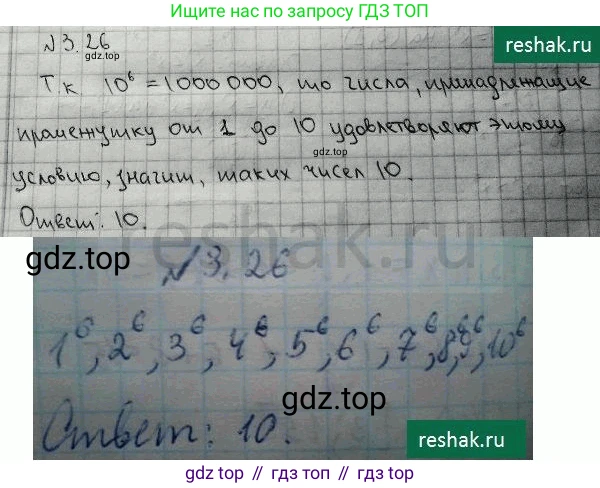 Ищите нас по запросу ГДЗ ТОП
№3.26
gdz.top
reshak.ru
Т.к 10⁶ = 1000 000, то числа, принадлежащие
промежутку от 1 до 10 удовлетворяют этому
gdz.top
условию, значит, таких чисел 10.
Ответ: 10.
gdz.top
reshak.ru
gdz.top
№3.26
1⁶, 2⁶, 3⁶, 4⁶, 5⁶, 6⁶, 7⁶, 8⁶, 9⁶, 10⁶
gdz.top
Ответ: 10.
reshak.ru
gdz top // гдз топ // gdz.top